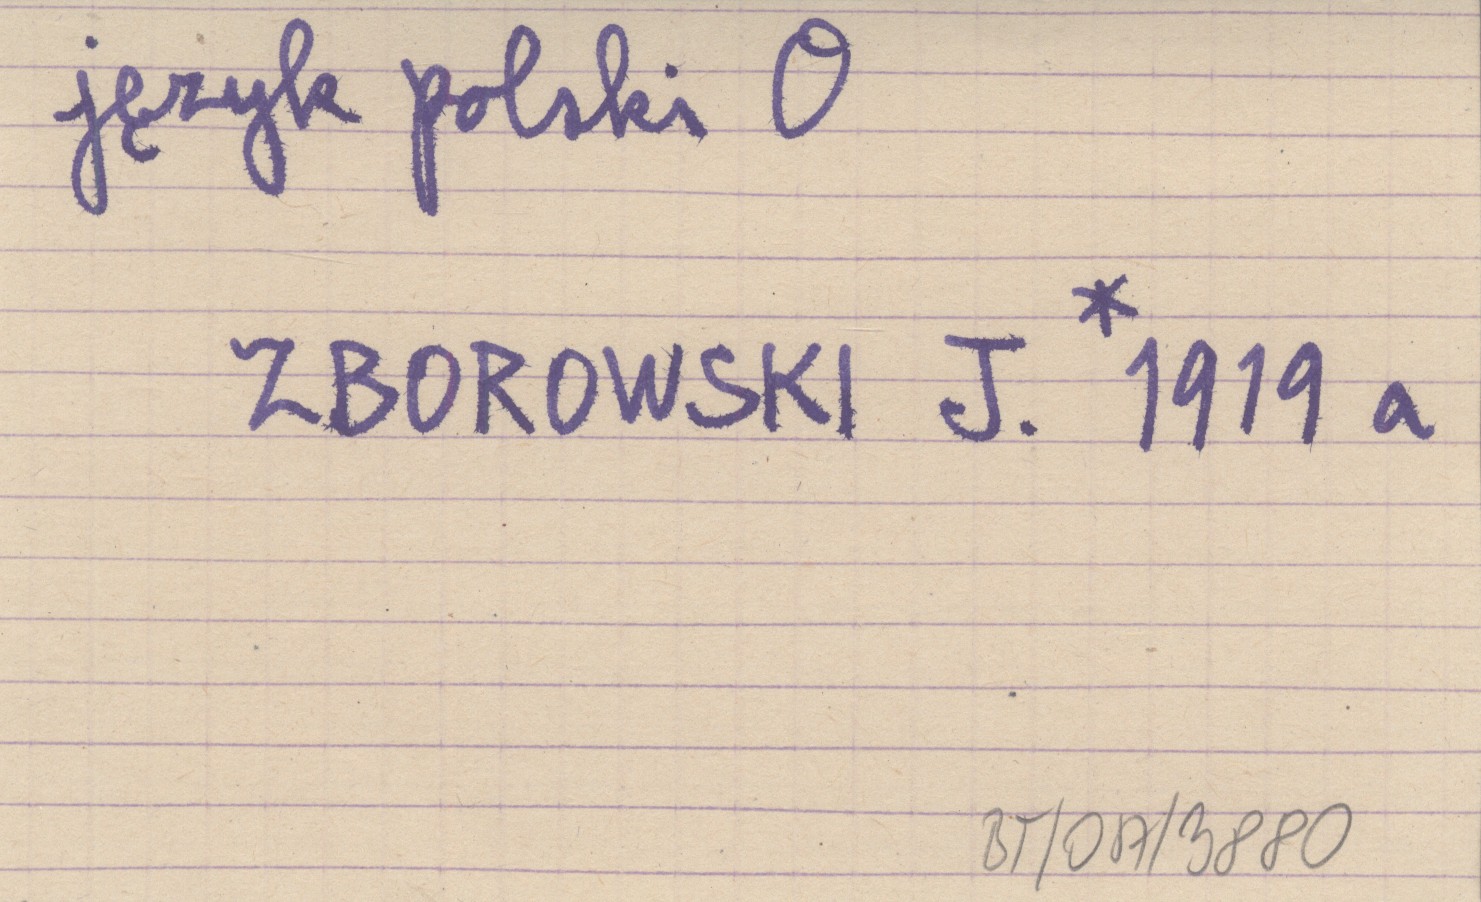 język polski O
ZBOROWSKI J. *1919 a
BT/OA/3880